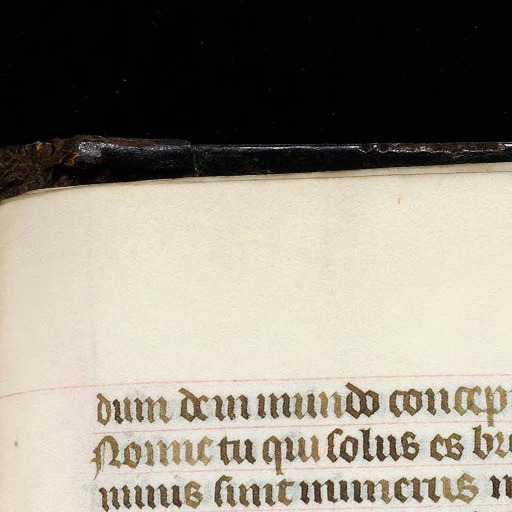 dum de inmundo concep
Nonne tu qui solus es bre
minis sunt numerus m